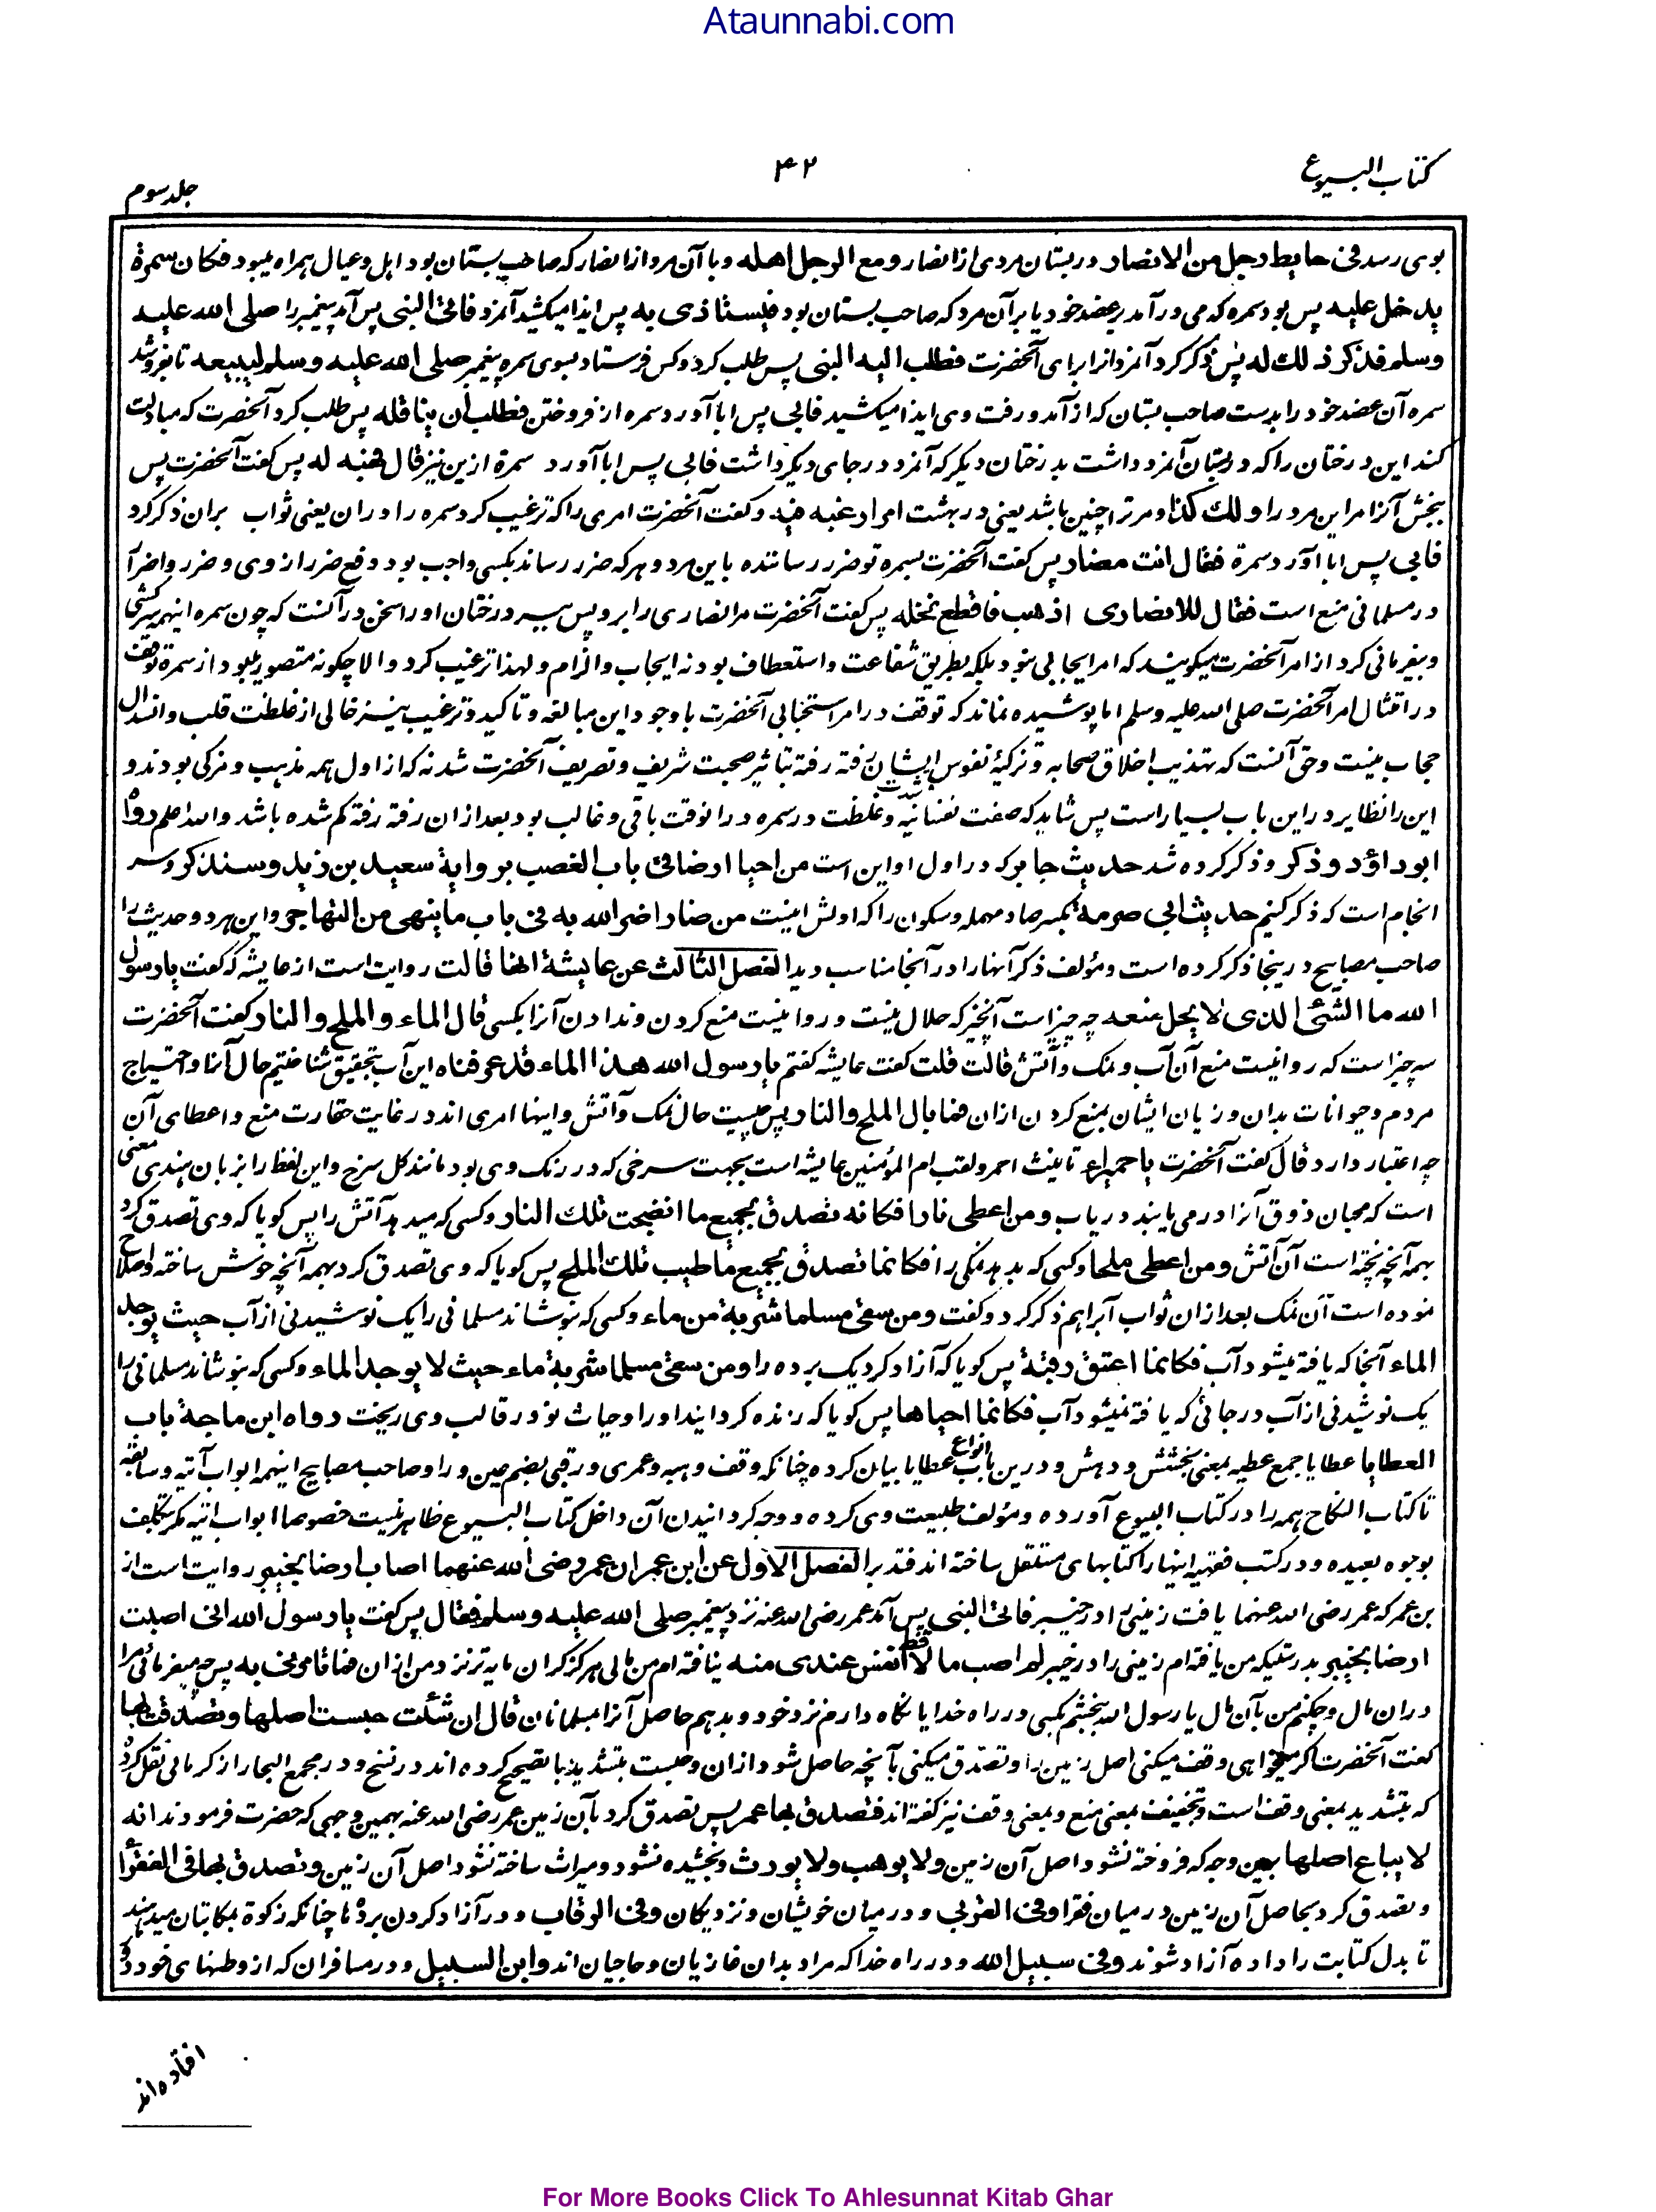 Ataunnabi.com
کتاب البیوع
۴۲
جلد سوم
بوی رسد فی حایط رجل من الانصار در بستان مردی از انصار و مع الرجل اهله و با آن مرد از انصار که صاحب بستان بود اهل و عیال همراه میبود فکان سمرة
یدخل علیه پس بود سمره که می در آمد بر عضد خود یا بر آن مرد که صاحب بستان بود فیستاذی به پس ایذا میکشید آنمرد فاتی النبی پس آمد پیغمبر را صلی الله علیه
وسلم فذکر ذلك له پس ذکر کرد آنمرد آنرا برای آنحضرت فطلب الیه النبی پس طلب کرد و کس فرستاد بسوی سمره پیغمبر صلی الله علیه وسلم لیبیعه تا بفروشد
سمره آن عضد خود را بدست صاحب بستان که از آمد و رفت وی ایذا میکشید فابی پس ابا آورد سمره از فروختن فطلب ان یناقله پس طلب کرد آنحضرت که مبادلت
کند این درختان را که در بستان آنمرد داشت بدرختان دیگر که آنمرد در جای دیگر داشت فابی پس ابا آورد سمرة ازین نیز قال فهبه له پس گفت آنحضرت پس
ببخش آنرا مر این مرد را ولك کذا و مر ترا چنین باشد یعنی در بهشت امرا رغبه فیه و گفت آنحضرت امری را که ترغیب کرد سمره را در ان یعنی ثواب بران ذکر کرد
فابی پس ابا آورد سمرة فقال انت مضار پس گفت آنحضرت بسمره تو ضرر رساننده باین مرد و هر که ضرر رساند بکسی واجب بود دفع ضرر از وی و ضرر واضرار
در مسلمانی منع است فقال للانصاری اذهب فاقطع نخله پس گفت آنحضرت مر انصاری را برو پس ببر درختان او را سخن در آنست که چون سمره اینهمه سرکشی
و بیفرمانی کرد از امر آنحضرت میگویند که امر ایجابی نبود بلکه بطریق شفاعت و استعطاف بود نه ایجاب و الزام و لهذا ترغیب کرد و الا چگونه متصور بود از سمرة توقف
در امتثال امر آنحضرت صلی الله علیه وسلم اما پوشیده نماند که توقف در امر استحبابی آنحضرت با وجود این مبالغه و تاکید و ترغیب نیز خالی از غلظت قلب و انسدال
حجاب نیست و حق آنست که تهذیب اخلاق صحابه و تزکیۀ نفوس ایشان رفته رفته بتاثیر صحبت شریف و تصریف آنحضرت شد نه که از اول همه مهذب و مزکی بودند و
این را نظایر در این باب بسیار است پس شاید که صفت نفسانیه و شدت غلظت در سمره در انوقت باقی و غالب بود بعد از ان رفته رفته کم شده باشد والله اعلم رواه
ابو داؤد و ذکر و ذکر کرده شد حدیث جابر که در اول او این است من احیا ارضا فی باب الغصب بروایة سعید بن زید وسنذکر و سر
انجام است که ذکر کنیم حدیث ابی صرمة بکسر صاد مهمله و سکون را که اولش اینست من ضار اضر الله به فی باب ما ینهی من التهاجر و این هر دو حدیث را
صاحب مصابیح درینجا ذکر کرده است و مؤلف ذکر آنها را در آنجا مناسب دید الفصل الثالث عن عایشة انها قالت روایت است از عایشه که گفت یا رسول
الله ما الشئ الذی لا یحل منعه چه چیز است آنچیز که حلال نیست و روا نیست منع کردن و ندادن آنرا بکسی قال الماء والملح والنار گفت آنحضرت
سه چیز است که روا نیست منع آن آب و نمک و آتش قالت قلت گفت عایشه گفتم یا رسول الله هذا الماء قد عرفناه این آب بتحقیق شناختیم حال آنرا و احتیاج
مردم و حیوانات بدان و زیان ایشان بمنع کردن ازان فما بال الملح والنار پس چیست حال نمک و آتش و اینها امری اند در غایت حقارت منع و اعطای آن
چه اعتبار دارد قال گفت آنحضرت یا حمیراء تانیث احمر و لقب ام المؤمنین عایشه است بجهت سرخی که در رنگ وی بود مانند گل سرخ و این لفظ را بزبان هندی معنی
است که محبان ذوق آنرا درمی یابند دریاب ومن اعطی نارا فکانه تصدق بجمیع ما انضجت تلك النار و کسی که میدهد آتش را پس گویا که وی تصدق کرد
بهمه آنچه پخته است آن آتش ومن اعطی ملحا و کسی که بدهد نمکی را فکانما تصدق بجمیع ما طیب تلك الملح پس گویا که وی تصدق کرد بهمه آنچه خوش ساخته و اصلاح
نموده است آن نمک بعد از ان ثواب آبرا هم ذکر کرد و گفت ومن سقی مسلما شربة من ماء و کسی که بنوشاند مسلمانی را یک نوشیدنی از آب حیث یوجد
الماء آنجا که یافته میشود آب فکانما اعتق رقبة پس گویا که آزاد کرد یک برده را ومن سقی مسلما شربة ماء حیث لا یوجد الماء و کسی که بنوشاند مسلمانی را
یک نوشیدنی از آب در جائی که یافته نمیشود آب فکانما احیاها پس گویا که زنده گردانید او را و حیات نو در قالب وی ریخت رواه ابن ماجة باب
العطایا عطایا جمع عطیه بمعنی بخشش و دهش و درین باب انواع عطایا بیان کرده چنانکه وقف و هبه و عمری و رقبی بضم عین و را و صاحب مصابیح اینهمه ابواب آتیه و سابقه
تا کتاب النکاح همه را در کتاب البیوع آورده و مؤلف طبیعت وی کرده و وجه گردانیدن آن داخل کتاب البیوع ظاهر نیست خصوصا ابواب اتیه مگر بتکلف
بوجوه بعیده و در کتب فقهیه اینها را کتابهای مستقل ساخته اند فتدبر الفصل الاول عن ابن عمر ان عمر رضی الله عنهما اصاب ارضا بخیبر روایت است از
بن عمر که عمر رضی الله عنهما یافت زمینی را در خیبر فاتی النبی پس آمد عمر رضی الله عنه نزد پیغمبر صلی الله علیه وسلم فقال پس گفت یا رسول الله انی اصبت
ارضا بخیبر بدرستیکه من یافته ام زمینی را در خیبر لم اصب مالا قط انفس عندی منه نیافته ام من مالی هرگز گران مایه تر نزد من ازان فما تامرنی به پس چه میفرمائی مرا
دران مال و چکنم من بآن مال یا رسول الله ببخشم بکسی در راه خدا یا نگاه دارم نزد خود و بدهم حاصل آنرا بمسلمانان قال ان شئت حبست اصلها وتصدقت بها
گفت آنحضرت اگر میخواهی وقف میکنی اصل زمین را و تصدق میکنی بآنچه حاصل شود ازان و حبست بتشدید با تصحیح کرده اند در نسخ و در مجمع البحار از کرمانی نقل کرده
که بتشدید بمعنی وقف است و بتخفیف بمعنی منع و بمعنی وقف نیز گفته اند فتصدق بها عمر پس تصدق کرد بآن زمین عمر رضی الله عنه بهمین وجهی که حضرت فرمودند انه
لا یباع اصلها بهمین وجه که فروخته نشود اصل آن زمین ولا یوهب ولا یورث و بخشیده نشود و میراث ساخته نشود اصل آن زمین وتصدق بها فی الفقراء
و تصدق کرد بحاصل آن زمین در میان فقرا وفی القربی و در میان خویشان و نزدیکان وفی الرقاب و در آزاد کردن بردها چنانکه زکوة بمکاتبان میدهند
تا بدل کتابت را داده آزاد شوند وفی سبیل الله و در راه خدا که مراد بدان غازیان و حاجیان اند وابن السبیل و در مسافران که از وطنهای خود دور
افتاده اند
For More Books Click To Ahlesunnat Kitab Ghar